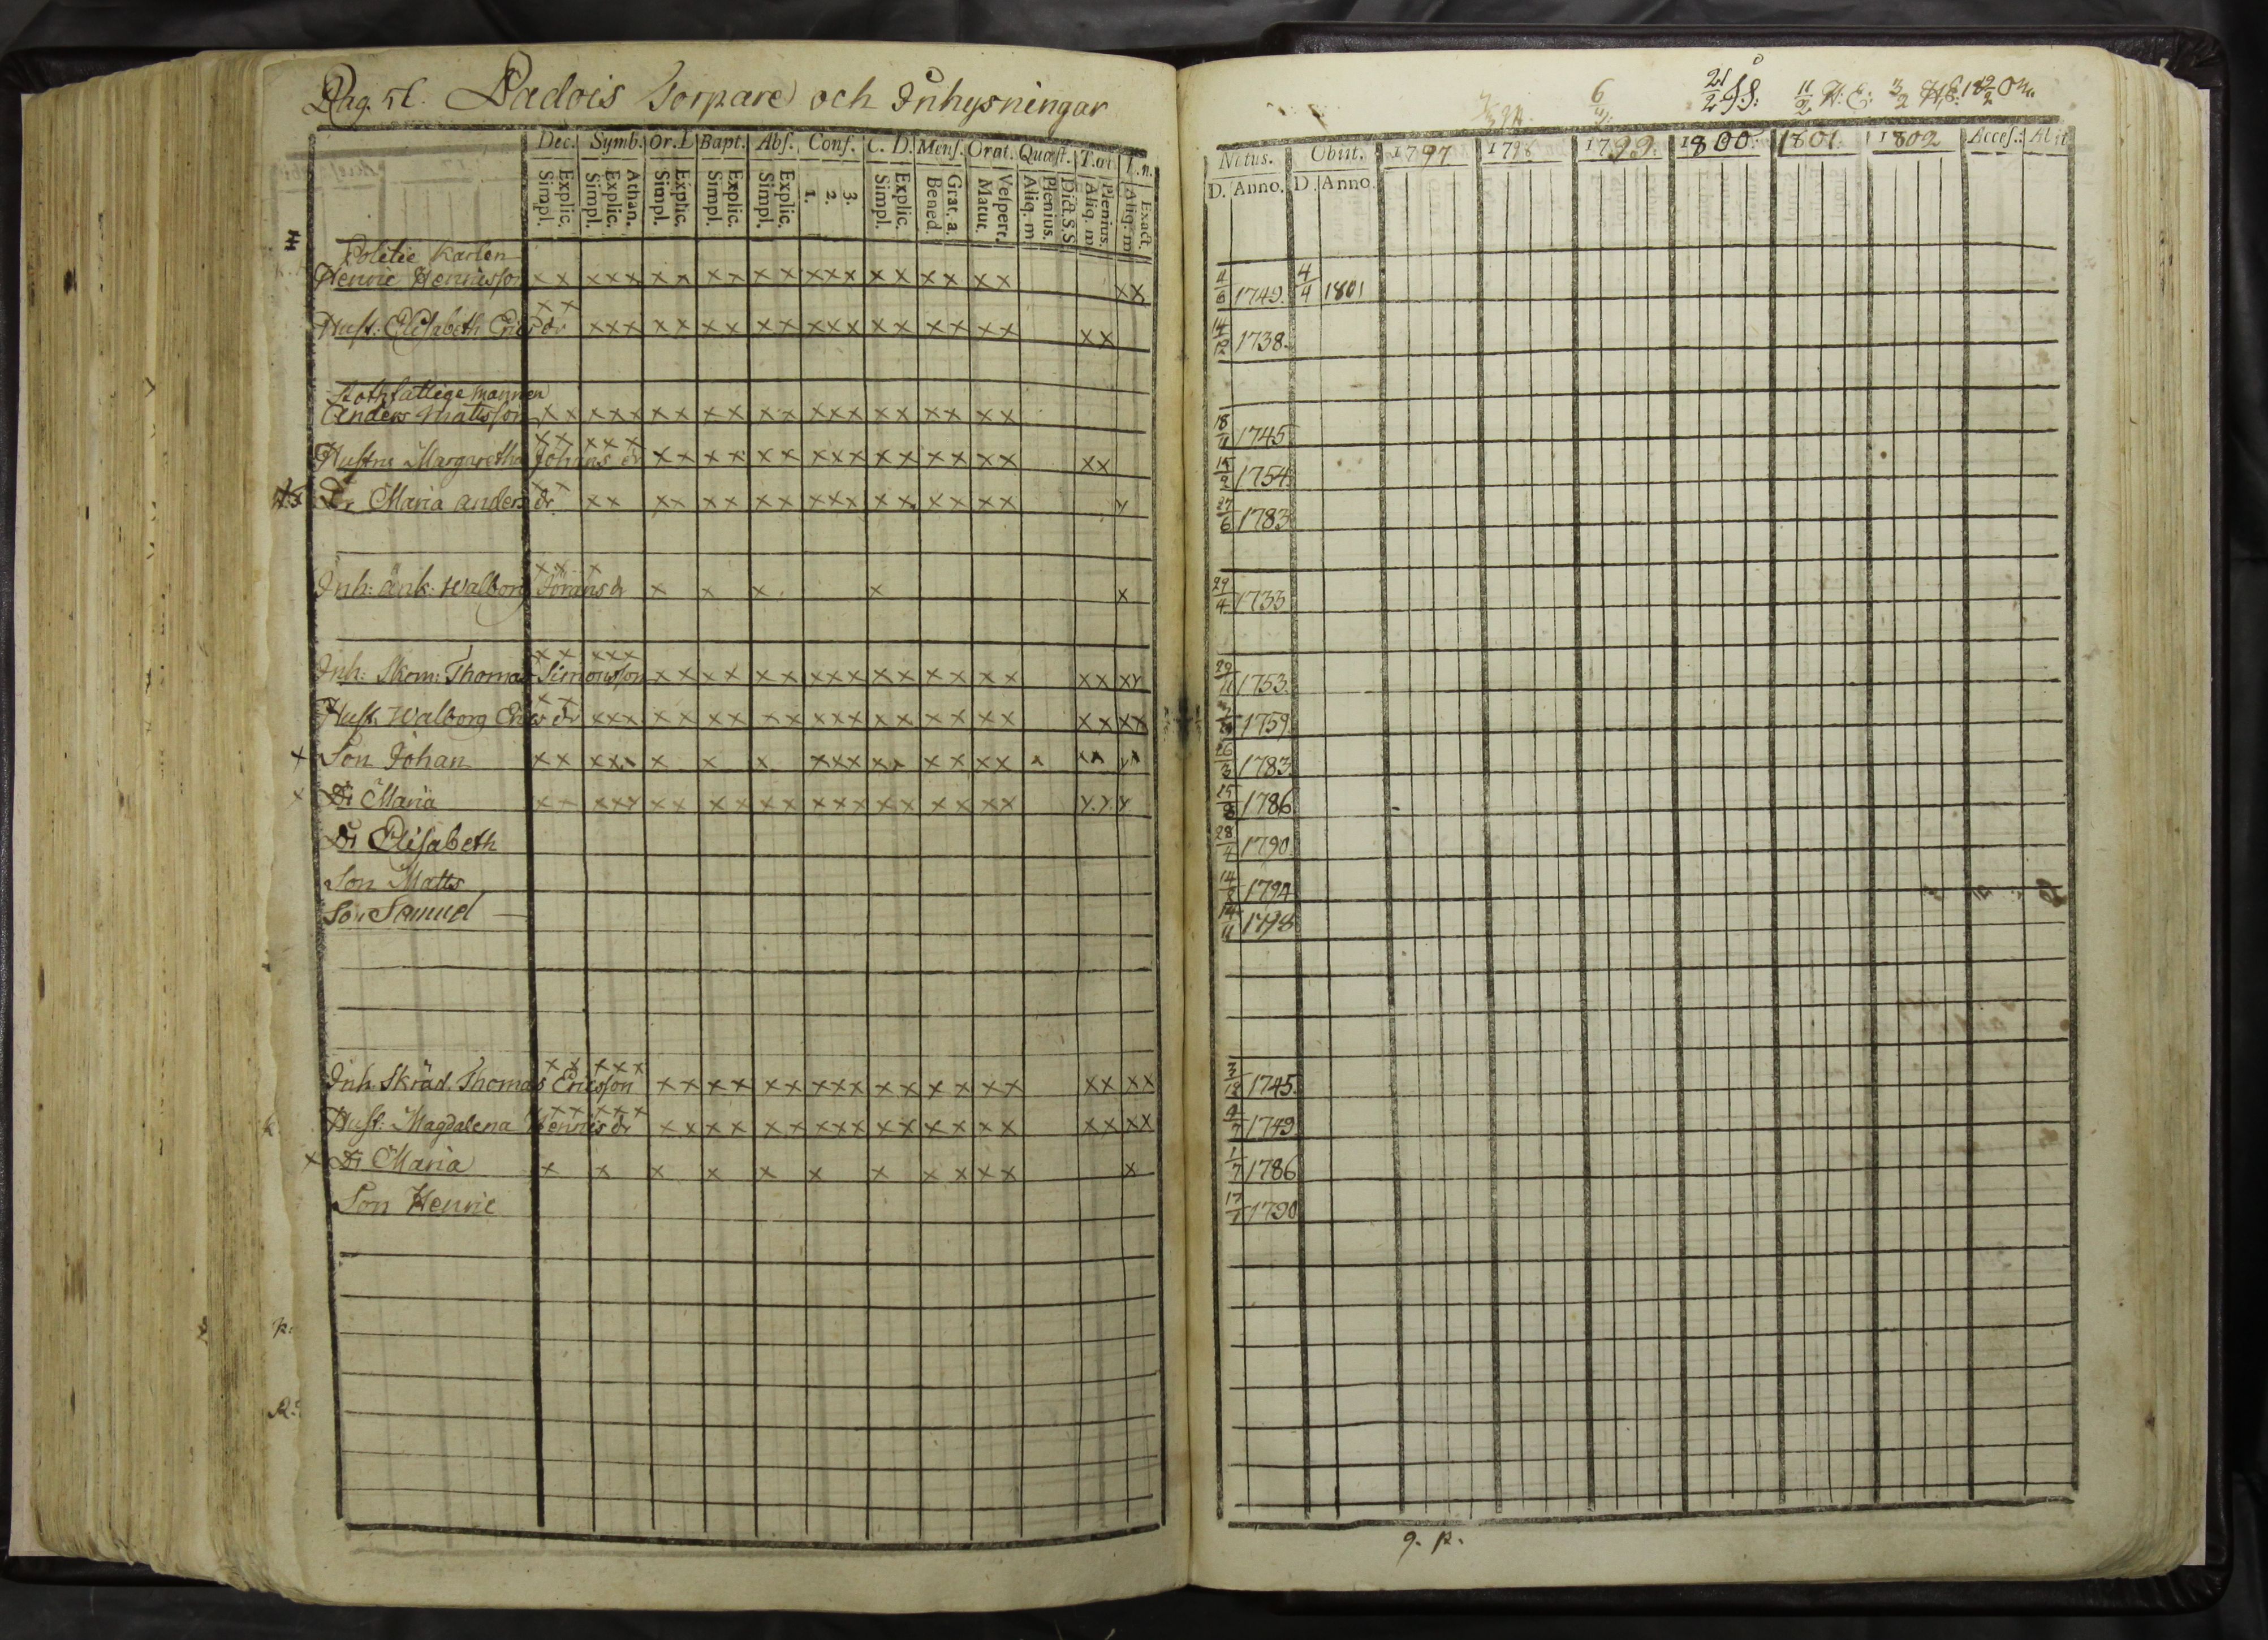 Pag. 51. Dadois Torpare och Inhysningar
Dec. Symb. Or. D. Bapt. Abs. Conf. C. D. Mens. Orat. Quæst. T. œc. L. n.
Explic. Simpl. Athan. Explic. Simpl. Explic. Simpl. Explic. Simpl. Explic. Simpl. 3. 2. 1. Explic. Simpl. Grat. a. Bened. Vespert. Matut. Plenius. Aliq. m Dict. S. S. Plenius. Aliq. m Exact. Aliq. m
Politie Karlen
Henric Henricsson x x x x x x x x x x x x x x x x x x x x x x
Hust: Elisabeth Erics dr x x x x x x x x x x x x x x x x x x x x x x
Rothfattige mannen
Anders Matsson x x x x x x x x x x x x x x x x x x x x
Hustru Margaretha Johans dr x x x x x x x x x x x x x x x x x x x x x x
Dr Maria Anders dr x x x x x x x x x x x x x x x x x x x x
Inh: änk: Walborg Jörans dr x x x x x x x x
Inh: Skom: Thomas Simonsson x x x x x x x x x x x x x x x x x x x x x x x x
Hust. Walborg Erics dr x x x x x x x x x x x x x x x x x x x x x x x x
x Son Johan x x x x x x x x x x x x x x x x x
x Dr Maria x x x x x x x x x x x x x x x x x x x x
Dr Elisabeth
Son Matts
Son Samuel
Inh Skräd. Thomas Ericsson x x x x x x x x x x x x x x x x x x x x x x x x
Hust: Magdalena Henrics dr x x x x x x x x x x x x x x x x x x x x x x x x
x Dr Maria x x x x x x x x x x x x
Son Henric
p:
R:
6 21/2 J.S: 11/2 H: E: 3/2 1802
Natus. Obiit. 1797 1798 1799. 1800. 1801. 1802 Acces. Abiit
D. Anno. D. Anno.
11/6 1749. 4/4 1801
14/12 1738.
18/11 1745
15/2 1754.
27/6 1783
29/4 1733
29/11 1753.
1759.
26/3 1783
25/8 1786
28/4 1790
14 1794
14/11 1798
3/12 1745.
9/7 1749
1/7 1786
17/7 1790
g. p.